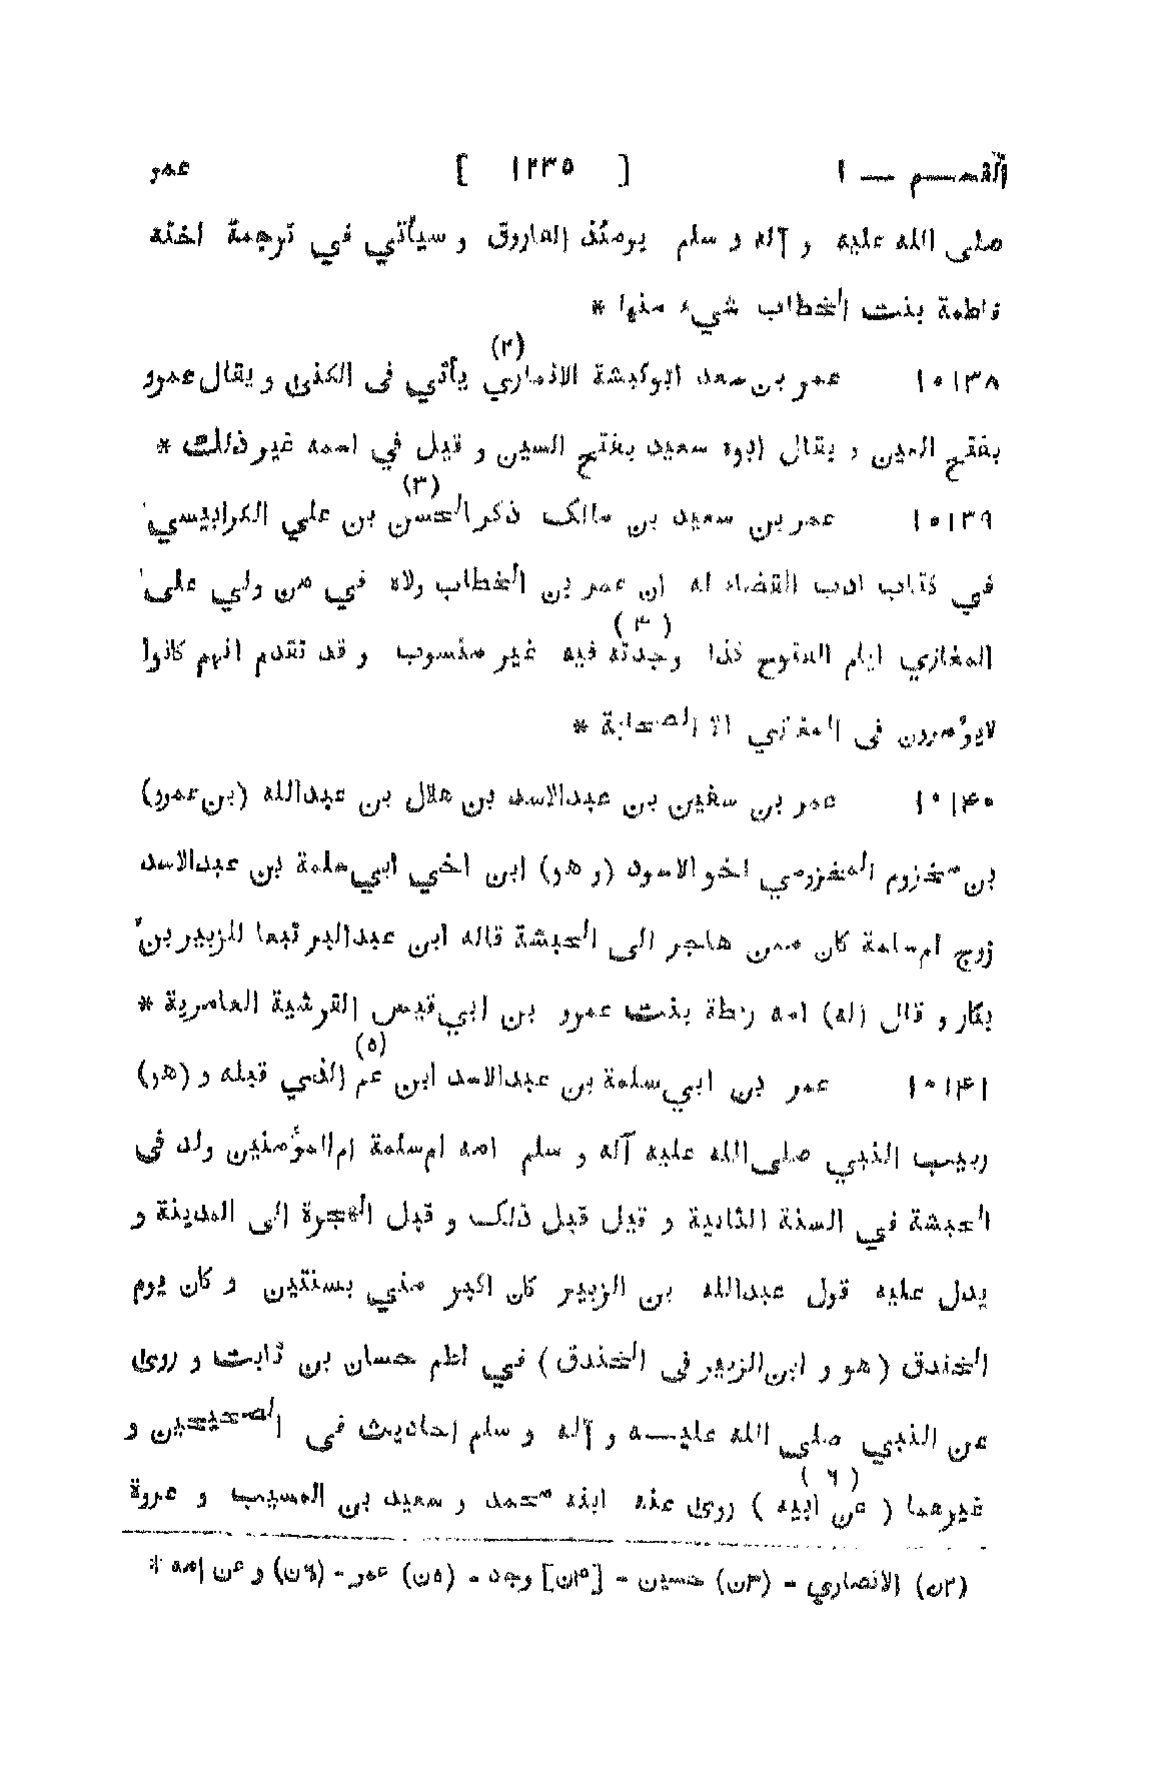 القسم — ١ [ ١٢٣٥ ] عمر
صلى الله عليه و آله و سلم يومئذ الفاروق و سيأتي في ترجمة اخته
فاطمة بنت الخطاب شيء منها *
١٠١٣٨ عمر بن سعد ابوكبشة الانماري (٢) يأتي فى الكنى و يقال عمرو
بفتح العين و يقال ابوه سعيد بفتح السين و قيل في اسمه غير ذلك *
١٠١٣٩ عمر بن سعيد بن مالك ذكر الحسن (٣) بن علي الكرابيسي
في كتاب ادب القضاء له ان عمر بن الخطاب ولاه في من ولي على
المغازي ايام الفتوح كذا وجدته (٤) فيه غير منسوب و قد تقدم انهم كانوا
لايؤمرون فى المغازي الا الصحابة *
١٠١٤٠ عمر بن سفين بن عبدالاسد بن هلال بن عبدالله (بن عمرو)
بن مخزوم المخزومي اخو الاسود (و هو) ابن اخي ابي سلمة بن عبدالاسد
زوج ام سلمة كان ممن هاجر الى الحبشة قاله ابن عبدالبر تبعا للزبير بن
بكار و قال (له) امه ريطة بنت عمرو بن ابي قيس القرشية العامرية *
١٠١٤١ عمر بن ابي سلمة بن عبدالاسد ابن عم (٥) الذي قبله و (هو)
ربيب النبي صلى الله عليه آله و سلم امه ام سلمة ام المؤمنين ولد فى
الحبشة في السنة الثانية و قيل قبل ذلك و قبل الهجرة الى المدينة و
يدل عليه قول عبدالله بن الزبير كان اكبر مني بسنتين و كان يوم
الخندق ( هو و ابن الزبير فى الخندق ) في اطم حسان بن ثابت و روى
عن النبي صلى الله عليــه و آله و سلم احاديث فى الصحيحين و
غيرهما ( عن ابيه (٦) ) روى عنه ابنه محمد و سعيد بن المسيب و عروة
(٢ن) الانصاري - (٣ن) حسين - [٤ن] وجد - (٥ن) عمر - (٦ن) و عن امه *